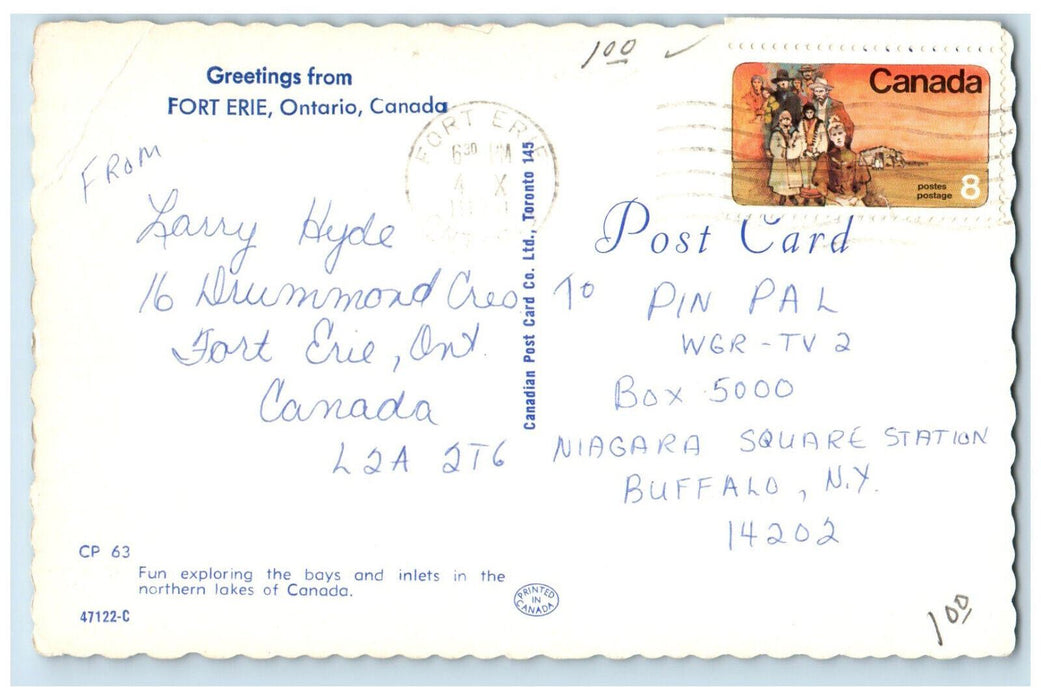 Greetings from
FORT ERIE, Ontario, Canada
1.00 ✓
Canada
postes
postage 8
FORT ERIE
6 30 PM
4 X
FROM
Larry Hyde
16 Drummond Cres.
Fort Erie, Ont.
Canada
L2A 2T6
Canadian Post Card Co. Ltd., Toronto 145
Post Card
To PIN PAL
WGR-TV 2
Box 5000
NIAGARA SQUARE STATION
BUFFALO, N.Y.
14202
CP 63
Fun exploring the bays and inlets in the
northern lakes of Canada.
47122-C
PRINTED
IN
CANADA
1.00